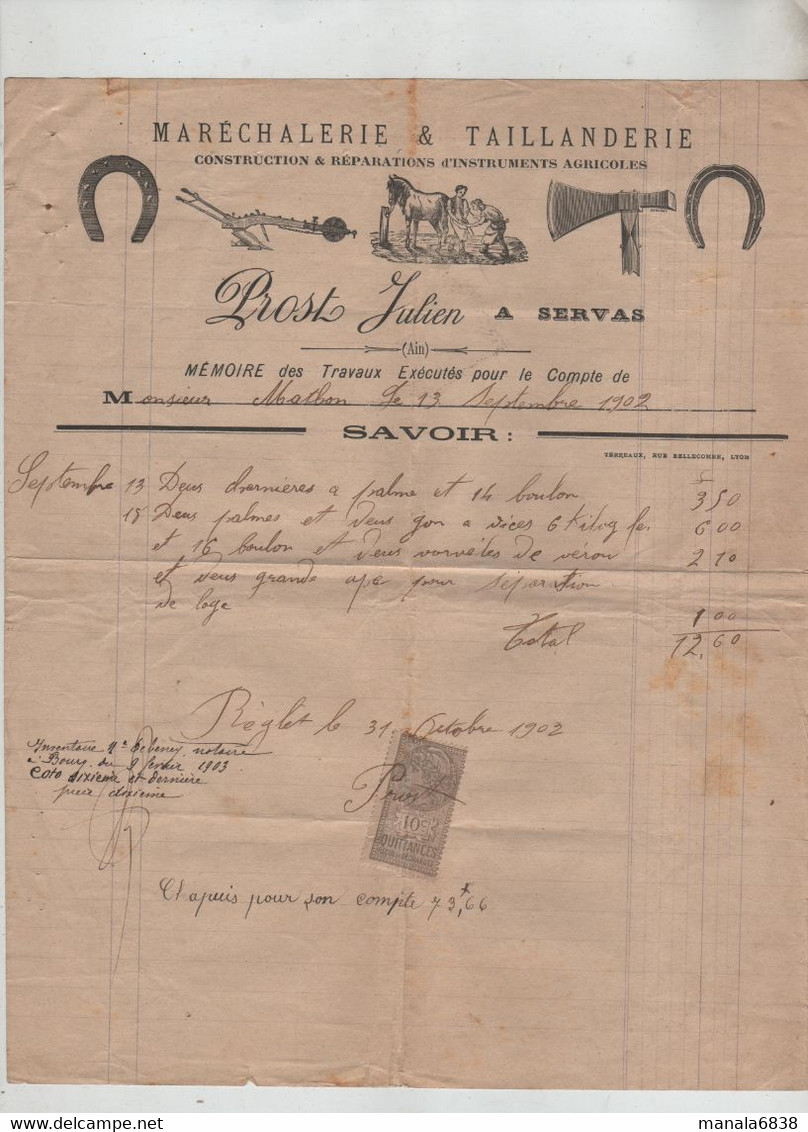 MARÉCHALERIE & TAILLANDERIE
CONSTRUCTION & RÉPARATIONS d'INSTRUMENTS AGRICOLES
Prost Julien A SERVAS
(Ain)
MÉMOIRE des Travaux Exécutés pour le Compte de
Monsieur Mathon le 13 Septembre 1902
SAVOIR :
TERREAUX, RUE BELLECOMBE, LYON
Septembre 13 Deus a palme et 14 boulon 3 50
18 Deus palmes et deus gon a vices 6 Kilog 6 00
et 16 boulon et deus de vérou 2 10
et deus grande pour séparation
de loge 1 00
Total 12,60
Réglét le 31 Octobre 1902
Inventaire notaire
à Bourg du 9 1903
Coto dixième et dernière
pièce dixième
Prost
10c
QUITTANCES
Chapuis pour son compte 73f,66
manala6838